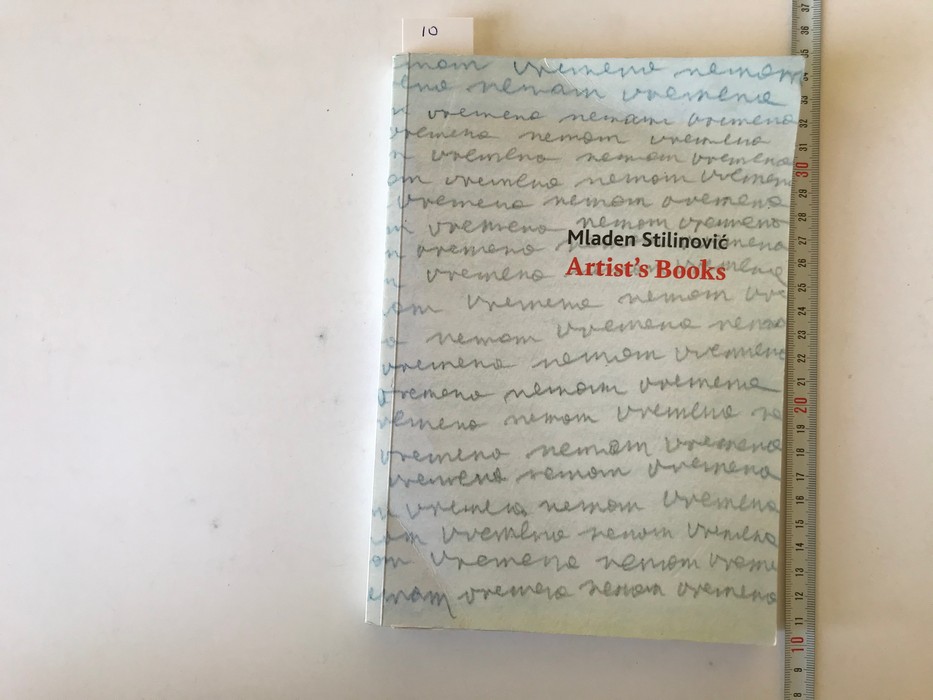 10
nemam vremena nemam
nemam vremena
vremena nemam vremena
vremena nemam vremena
vremena nemam vremena
vremena nemam vremena
vremena nemam vremena
vremena nemam vremena
Mladen Stilinović
vremena
Artist's Books
vremena
vremena nemam
nemam vremena
vremena nemam vremena
vremena nemam vremena
vremena nemam vremena
vremena nemam vremena
vremena nemam vremena
vremena nemam vremena
vremena nemam vremena
vremena nemam
vremena nemam vremena
37
36
35
34
33
32
31
30
29
28
27
26
25
24
23
22
21
20
19
18
17
16
15
14
13
12
11
10
9
8